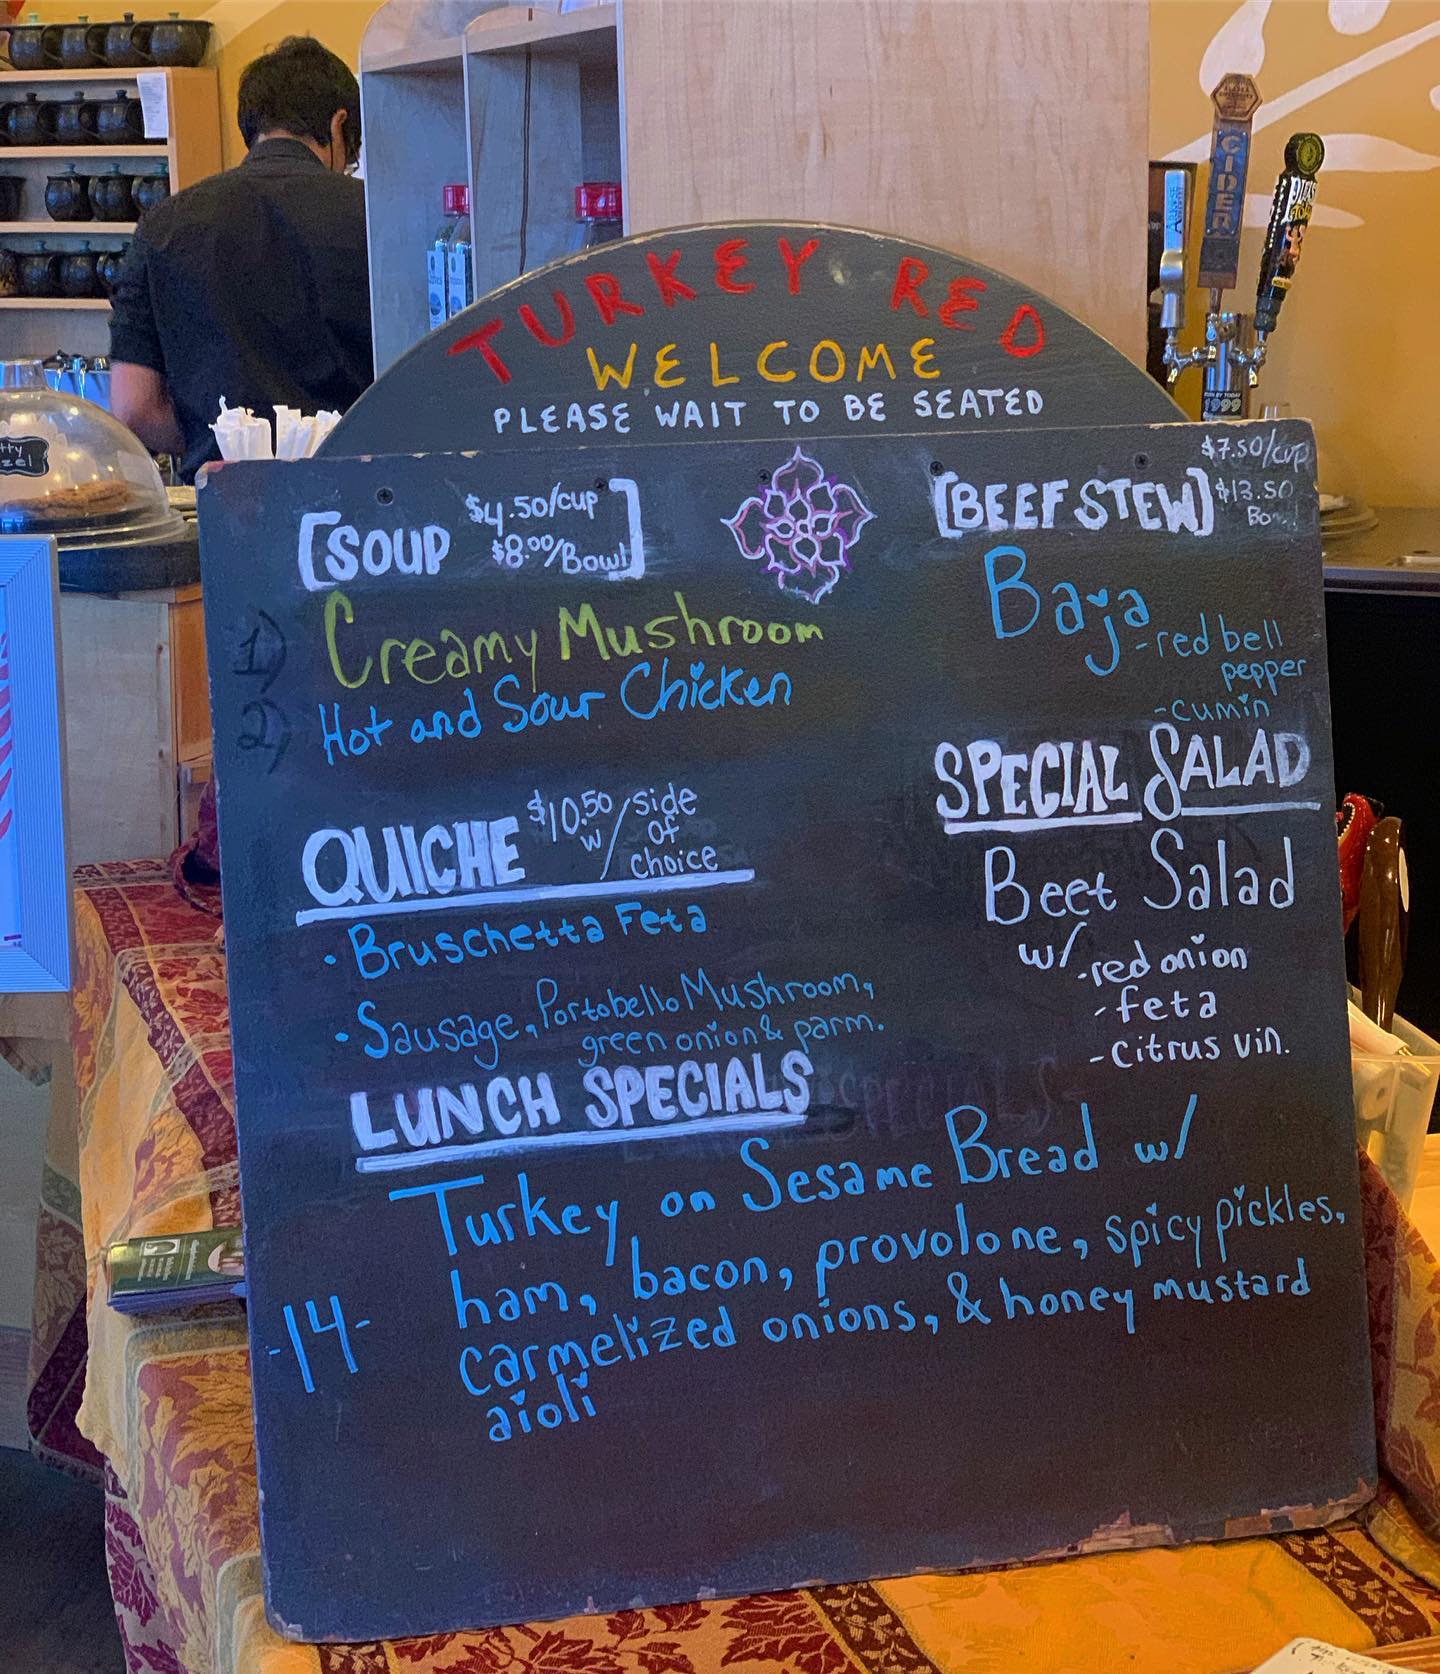 TURKEY RED
WELCOME
PLEASE WAIT TO BE SEATED
[SOUP $4.50/cup
$8.00/Bowl]
1) Creamy Mushroom
2) Hot and Sour Chicken
QUICHE $10.50 w/ side
of
choice
• Bruschetta Feta
• Sausage, Portobello Mushroom,
green onion & parm.
[BEEF STEW] $7.50/cup
$13.50
Baja
-red bell
pepper
-cumin
SPECIAL SALAD
Beet Salad
w/ -red onion
-feta
-citrus vin.
LUNCH SPECIALS
Turkey on Sesame Bread w/
ham, bacon, provolone, spicy pickles,
-14- carmelized onions, & honey mustard
aioli
CIDER
1999